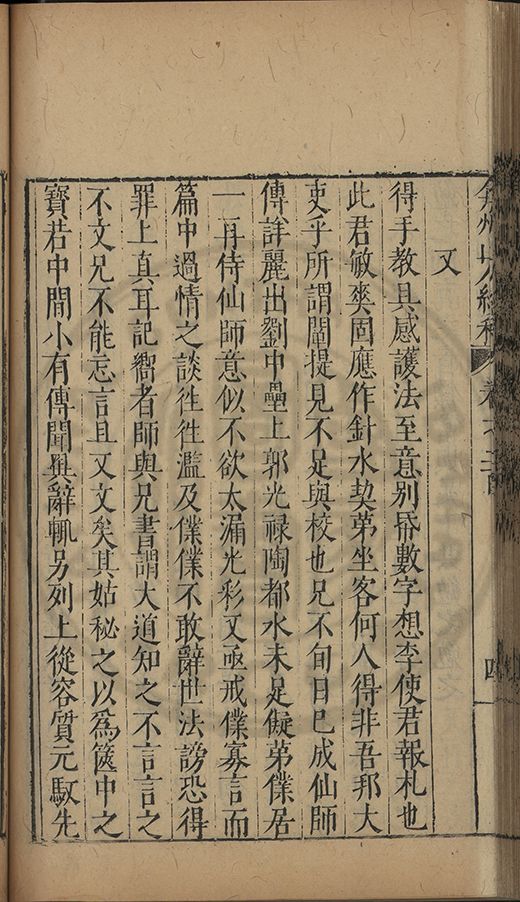 又
得手教具感護法至意別昏數字想李使君報札也
此君敏爽固應作針水契弟坐客何人得非吾邦大
吏乎所謂闡提見不足與校也兄不旬日已成仙師
傳詳麗出劉中壘上郭光祿陶都水未足儗弟僕居
一再侍仙師意似不欲太漏光彩又亟戒僕寡言而
篇中過情之談徃徃濫及僕僕不敢辭世法謗恐得
罪上真耳記嚮者師與兄書謂大道知之不言言之
不文兄不能忘言且又文矣其姑秘之以為篋中之
寶若中間小有傳聞異辭輒另列上從容質元馭先
弇州山人續稿
四